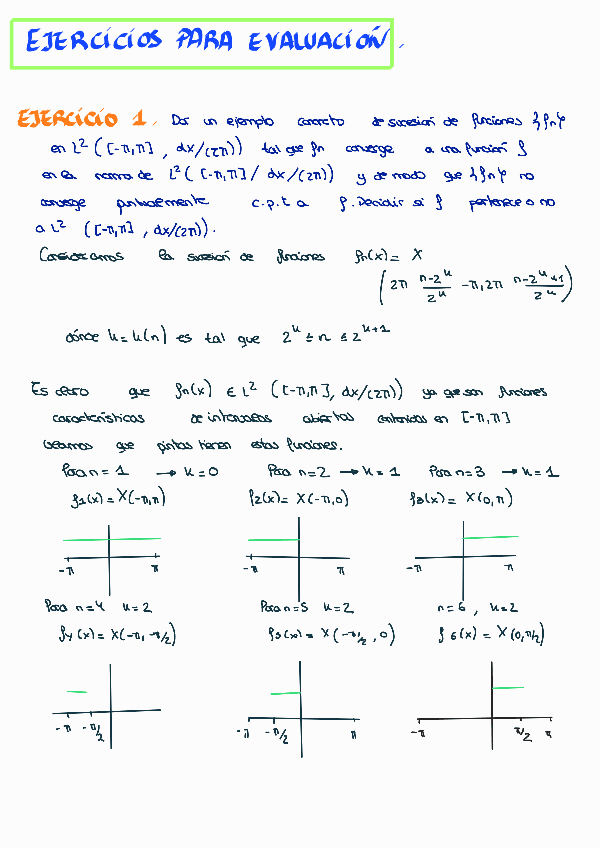 EJERCICIOS PARA EVALUACIÓN.
EJERCICIO 1. Dar un ejemplo concreto de sucesión de funciones {fn}
en L² ([-π,π], dx/(2π)) tal que fn converge a una función f
en la norma de L² ([-π,π] / dx/(2π)) y de modo que {fn} no
converge puntualmente c.p.t a f. Decidir si f pertenece o no
a L² ([-π,π], dx/(2π)).
Consideramos la sucesión de funciones fn(x) = X
(2π n-2ᵏ/2ᵏ -π, 2π n-2ᵏ+1/2ᵏ)
dónde k = k(n) es tal que 2ᵏ ≤ n ≤ 2ᵏ⁺¹
Es claro que fn(x) ∈ L² ([-π,π], dx/(2π)) ya que son funciones
características de intervalos abiertos contenidos en [-π,π]
Veamos que pintas tienen estas funciones.
Para n = 1 → k = 0 Para n=2 → k = 1 Para n=3 → k = 1
f1(x) = X(-π,π) f2(x) = X(-π,0) f3(x) = X(0,π)
-π π -π π -π π
Para n=4 k=2 Para n=5 k=2 n=6, k=2
f4(x) = X(-π,-π/2) f5(x) = X(-π/2,0) f6(x) = X(0,π/2)
-π -π/2 -π -π/2 π -π π/2 π